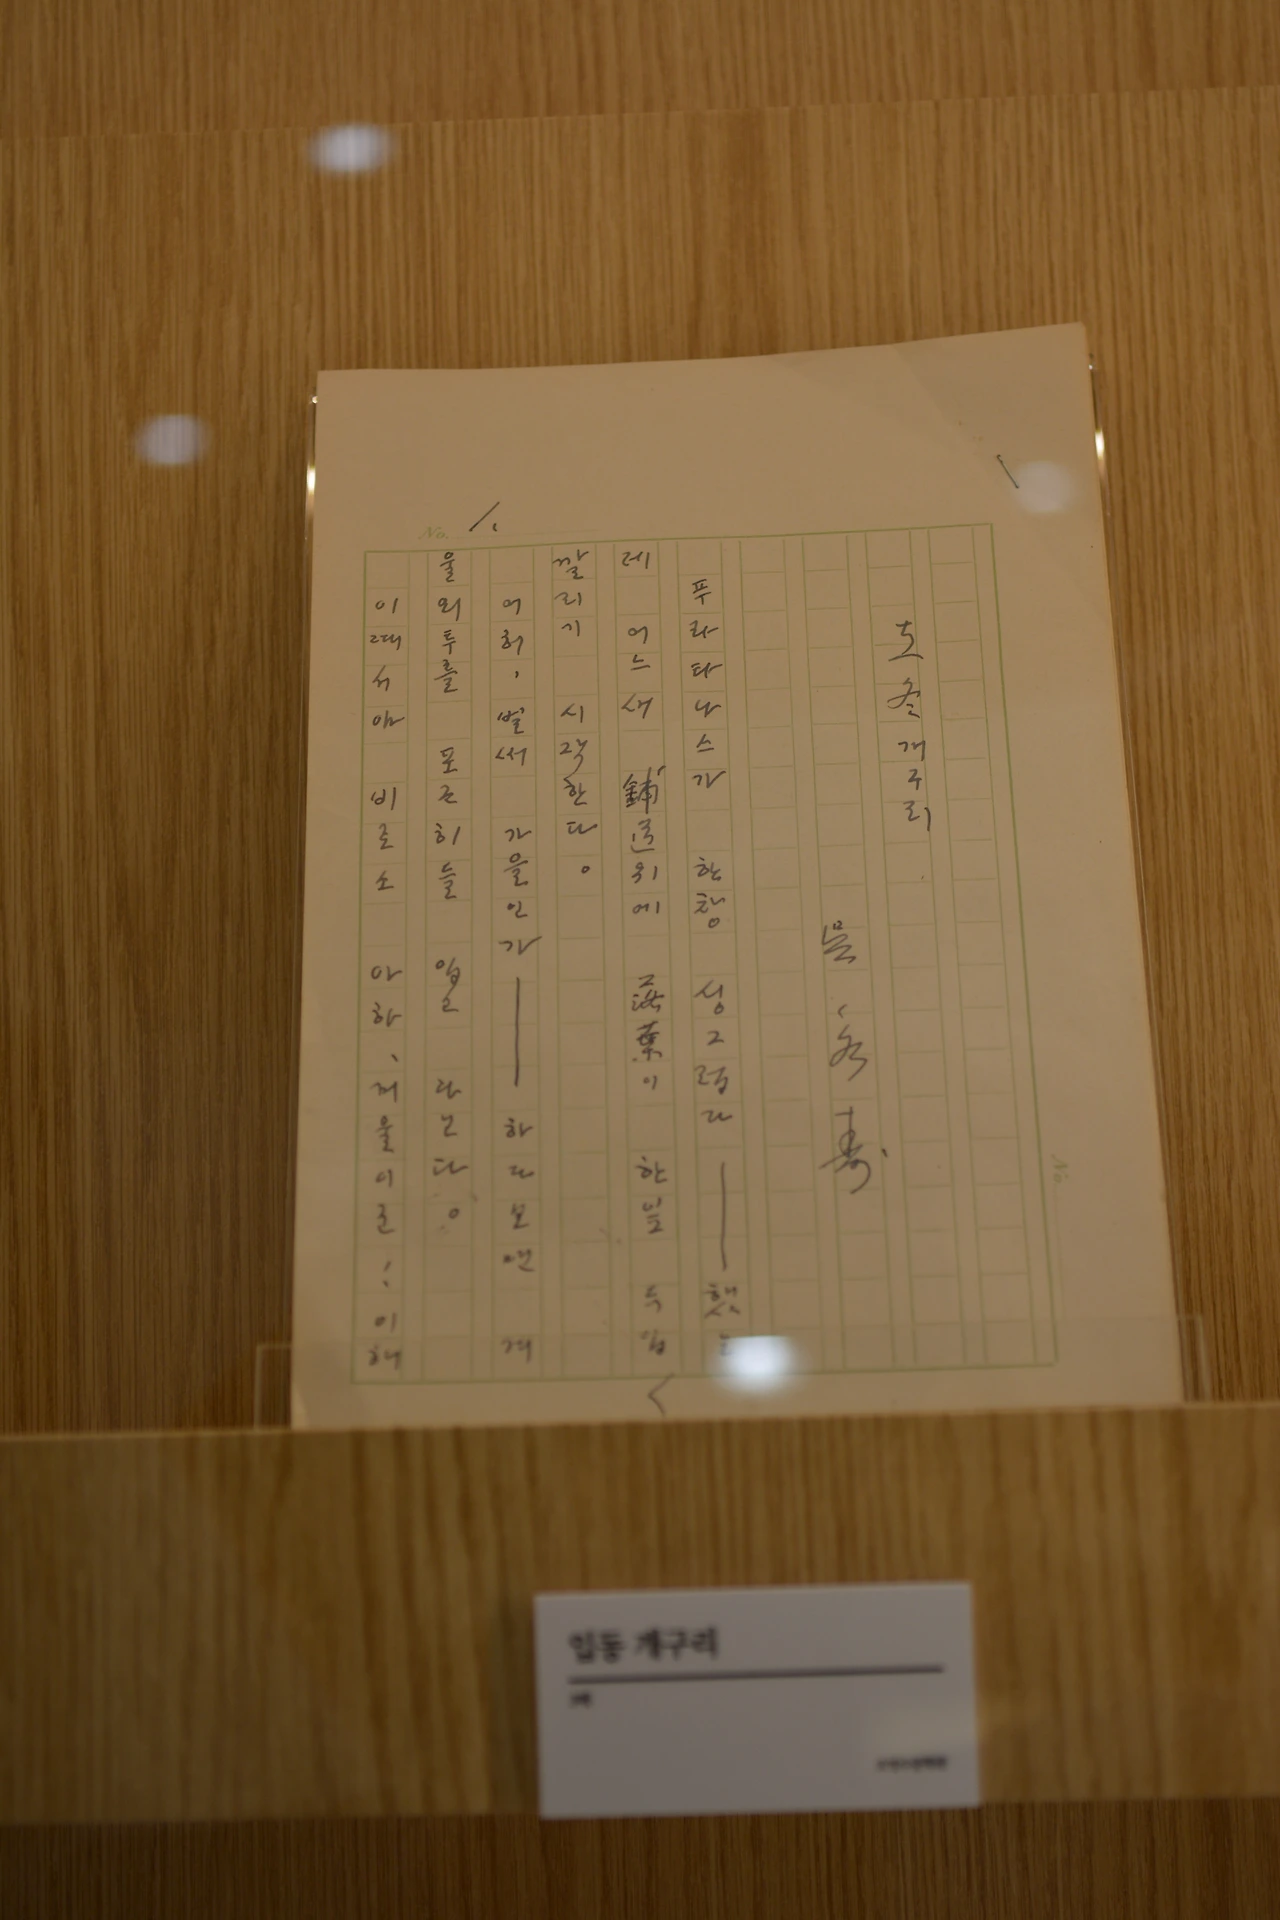 No. 1.
立冬개구리
吳、永壽
푸라타나스가 한창 싱그럽다——했는
데 어느새 舖道위에 落葉이 한잎 두잎
깔리기 시작한다。
어허, 벌써 가을인가——하다보면 겨
울외투를 포근히들 입고 나온다。
이때서야 비로소 아하、겨울이군! 이해
No.
입동 개구리